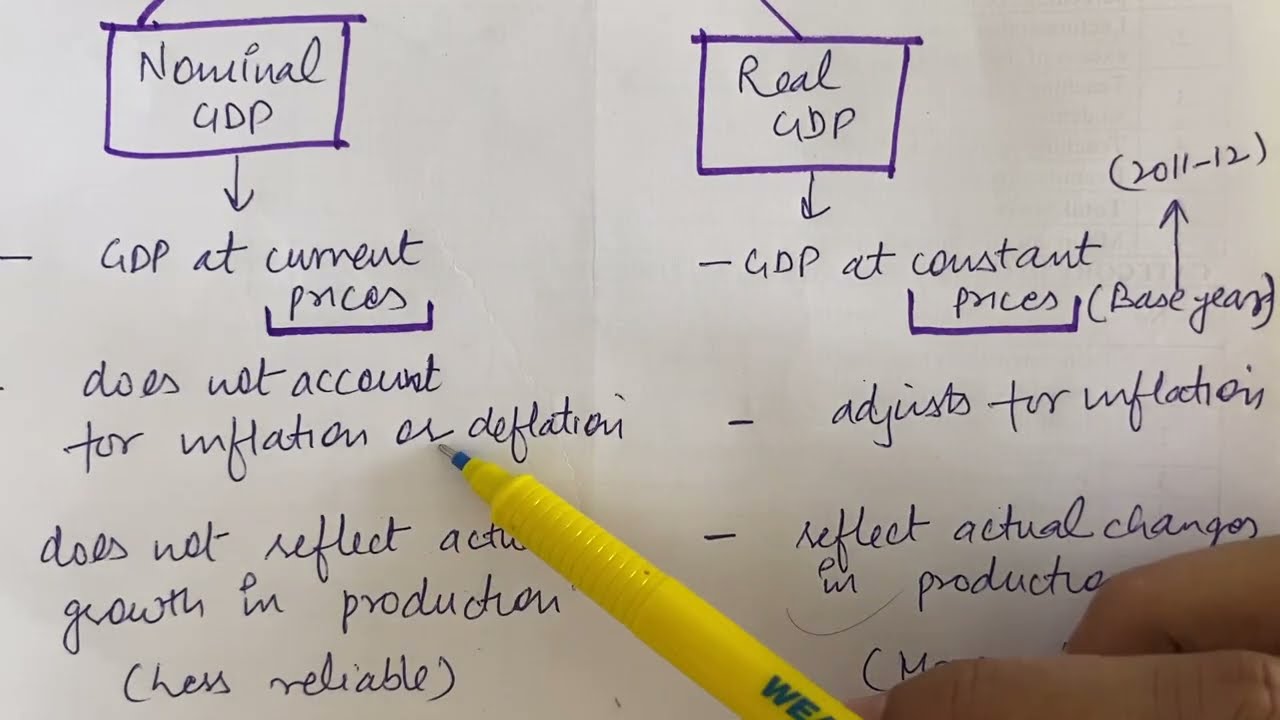 Nominal
GDP
- GDP at current
prices
- does not account
for inflation or deflation
does not reflect
growth in production
(Less reliable)
Real
GDP
(2011-12)
- GDP at constant
prices (Base year)
- adjusts for inflation
- reflect actual changes
in
WEA